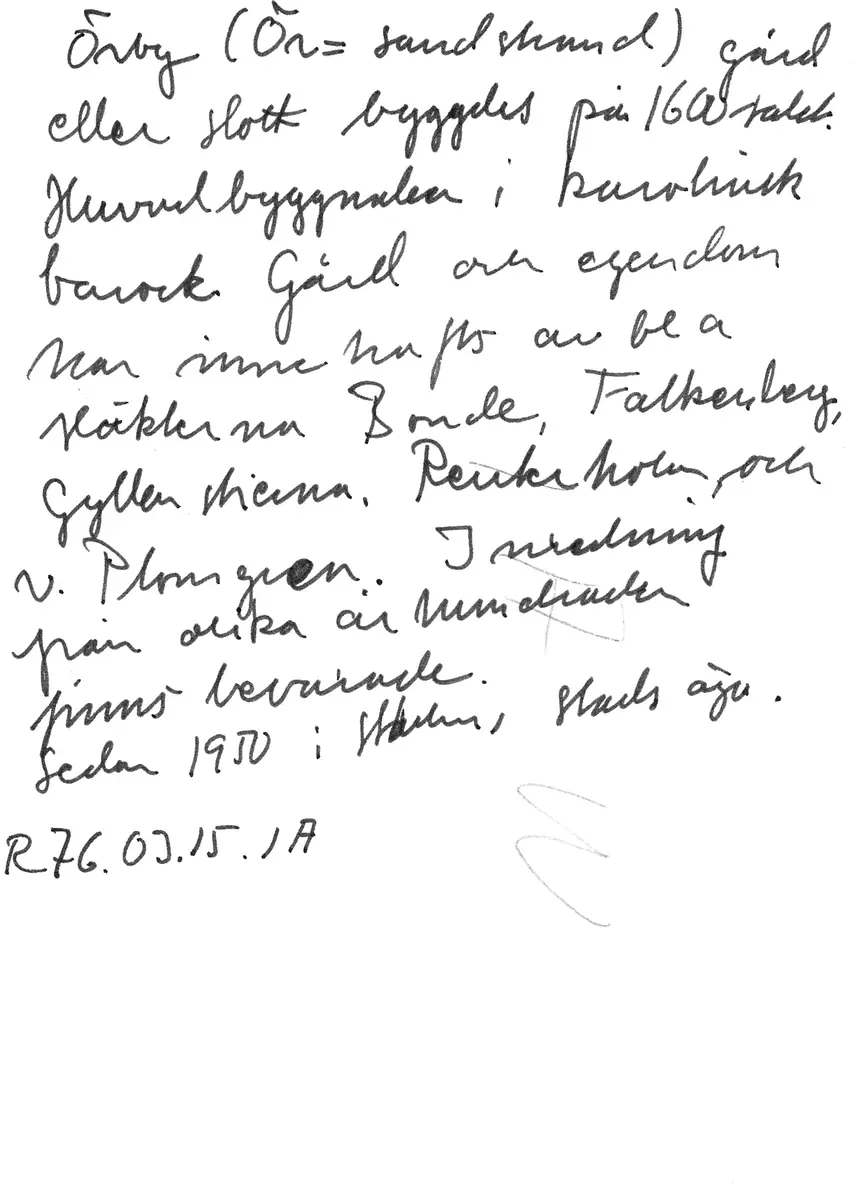 Örby (Ör= sandstrand) gård
eller slott byggdes på 1600 talet.
Huvudbyggnaden i karolinsk
barock. Gård och egendom
har innehafts av bl a
släkterna Bonde, Falkenberg,
Gyllenstierna, Reuterholm, och
v. Plomgren. Inredning
från olika århundraden
finns bevarade.
Sedan 1950 i stadens, stads ägo.
R76.03.15.1A